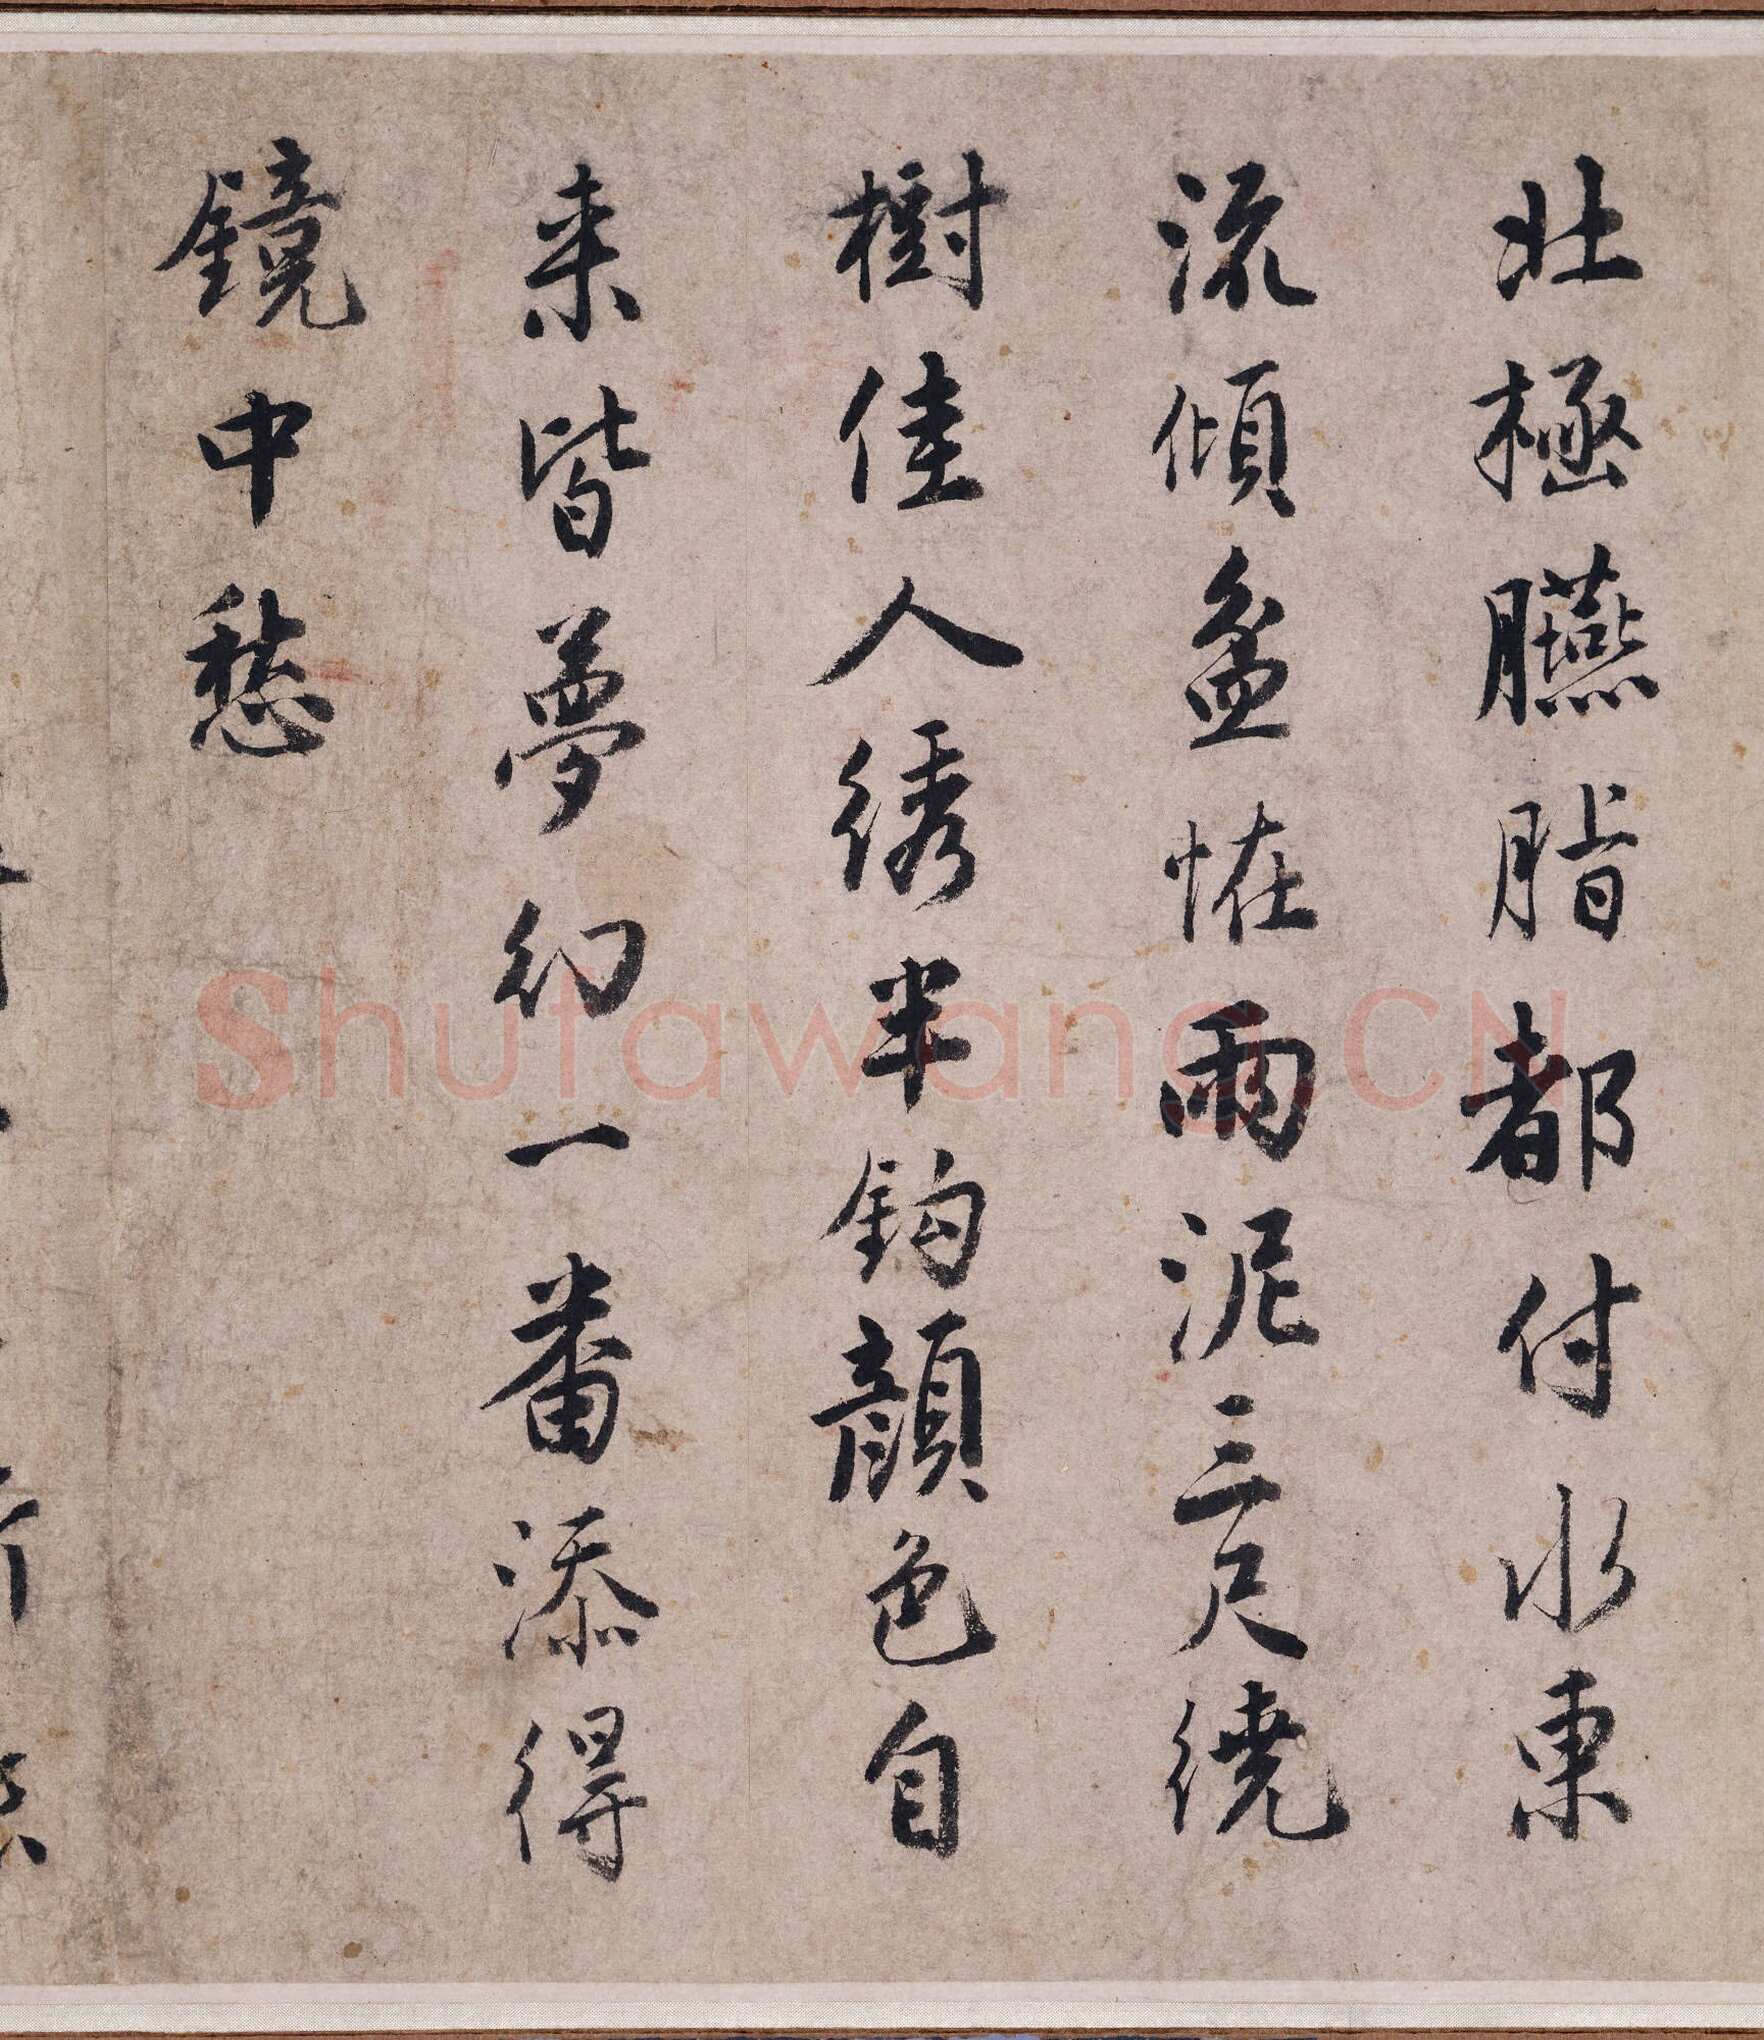 北極臙脂都付水東
流傾盆怪雨泥三尺繞
樹佳人綉半鈎顔色自
来皆夢幻一番添得
鏡中愁
Shufawang.CN